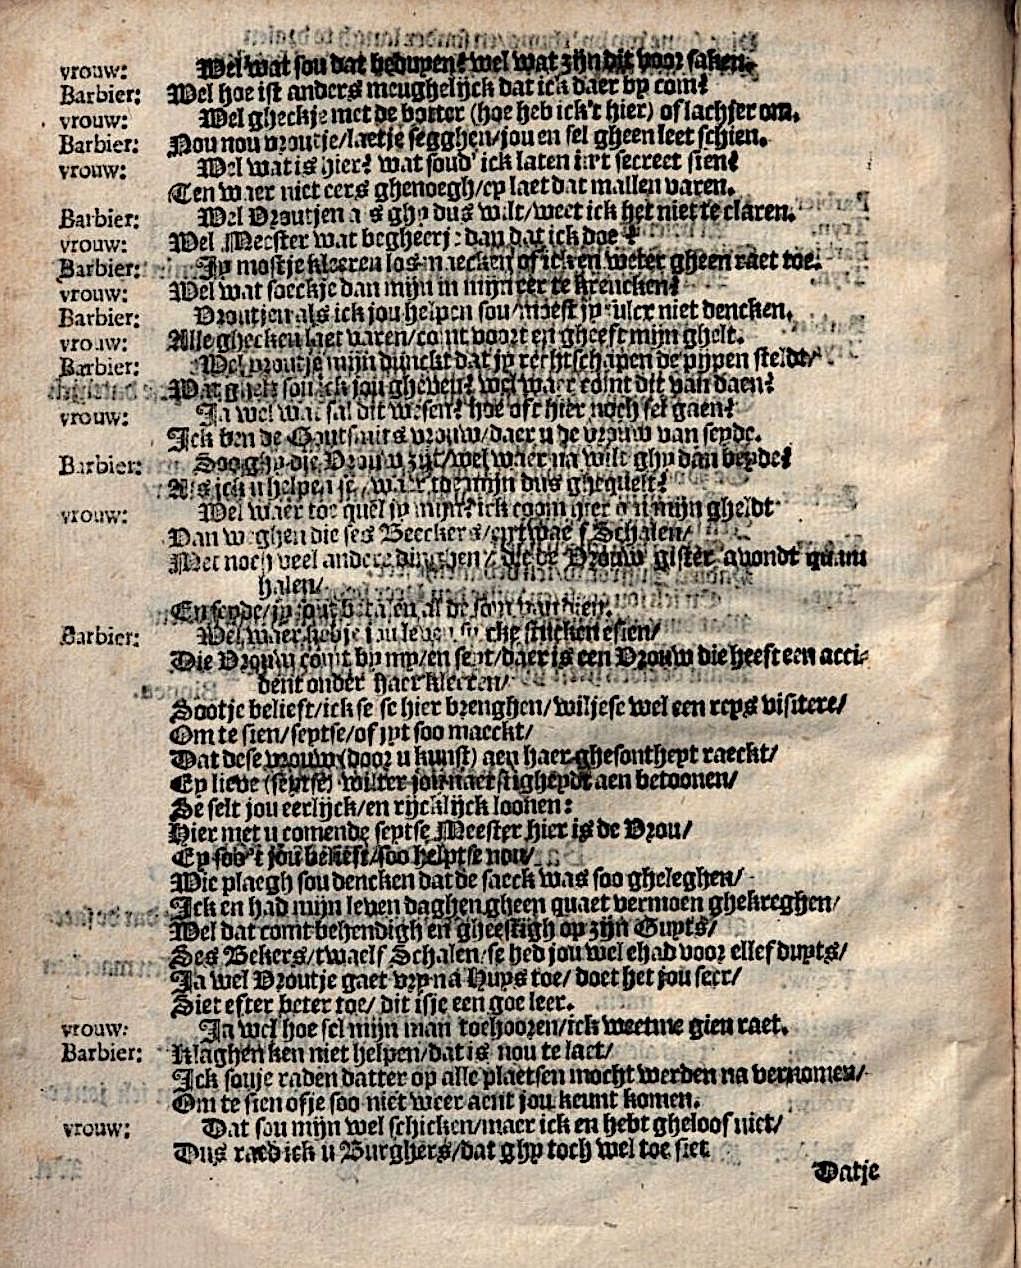 vrouw: Wel wat sou dat beduyen? wel wat zijn dit voor saken.
Barbier: Wel hoe ist anders meughelijck dat ick daer by com?
vrouw: Wel gheckje met de botter (hoe heb ick't hier) of lachster om.
Barbier: Nou nou vroutje/laetje segghen/jou en sel gheen leet schien.
vrouw: Wel wat is hier? wat soud' ick laten int secreet sien?
Ten waer niet eers ghenoegh/ey laet dat mallen varen.
Barbier: Wel Vroutjen as ghy dus wilt/weet ick het niet te claren.
vrouw: Wel Meester wat begheerje dan dat ick doe?
Barbier: Jy mostje kleeren los maecken of ick en weter gheen raet toe.
vrouw: Wel wat soeckje dan mijn in mijn eer te krencken?
Barbier: Vroutjen als ick jou helpen sou/moest jy sulcx niet dencken.
vrouw: Alle ghecken laet varen/comt voort en gheeft mijn ghelt.
Barbier: Wel vroutje mijn dunckt dat jy rechtschapen de pijpen steldt/
Wat ghelt sou ick jou gheven? wel waer comt dit van daen?
vrouw: Ja wel wat sal dit wesen? hoe oft hier noch sel gaen?
Ick ben de Goutsmits vrouw/daer u de vrouw van seyde.
Barbier: Soo ghy die Vrouw zijt/wel waer na wilt ghy dan beyde?
Als ick u helpen sel, waer toe mijn dus ghequelt?
vrouw: Wel waer toe quel jy mijn? ick coom hier om mijn gheldt
Van weghen die ses Beeckers/entwaelf Schalen/
Met noch veel andere dinghen/ die de Vrouw gister avondt quam
halen/
En seyde/jy sout betalen al de som van dien.
Barbier: Wel waer hebje jou leven sulcke stucken esien/
Die Vrouw comt by my/en seyt/daer is een Vrouw die heeft een acci-
dent onder haer kleeren/
Sootje belieft/ick se se hier brenghen/wiljese wel een reys visitere/
Om te sien/seytse/of jyt soo maeckt/
Dat dese vrouw (door u kunst) aen haer ghesontheyt raeckt/
Ey lieve (seytse) wilter jou naerstigheydt aen betoonen/
Se selt jou eerlijck/en rijcklijck loonen:
Hier met u comende seytse Meester hier is de Vrou/
Ey soo't jou belieft/soo helptse nou/
Wie plaegh sou dencken dat de saeck was soo gheleghen/
Ick en had mijn leven daghen gheen quaet vermoen ghekreghen/
Wel dat comt behendigh en gheestigh op zijn Guyts/
Ses Bekers/twaelf Schalen/se hed jou wel ehad voor ellef duyts/
Ja wel Vroutje gaet vry na Huys toe/ doet het jou seer/
Siet efter beter toe/ dit isje een goe leer.
vrouw: Ja wel hoe sel mijn man toehooren/ick weetme gien raet.
Barbier: Klaghen ken niet helpen/dat is nou te laet/
Ick souje raden datter op alle plaetsen mocht werden na vernomen/
Om te sien ofje soo niet weer aent jou keunt komen.
vrouw: Dat sou mijn wel schicken/maer ick en hebt gheloof niet/
Dus raed ick u Burghers/dat ghy toch wel toe siet
Datje